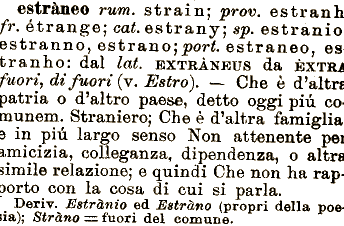 estràneo rum. strain; prov. estranh
fr. étrange; cat. estrany; sp. estranio
estranno, estrano; port. estraneo, es-
tranho: dal lat. EXTRÀNEUS da ÈXTRA
fuori, di fuori (v. Estro). — Che è d'altra
patria o d'altro paese, detto oggi piú co-
munem. Straniero; Che è d'altra famiglia
e in piú largo senso Non attenente per
amicizia, colleganza, dipendenza, o altra
simile relazione; e quindi Che non ha rap-
porto con la cosa di cui si parla.
Deriv. Estrànio ed Estràno (propri della poe-
sia); Stràno = fuori del comune.